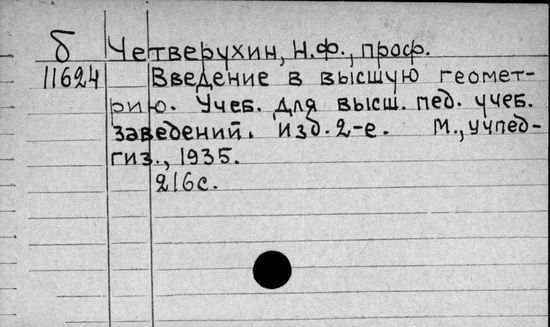 б Четверухин, Н.Ф., проф.
11624 Введение в высшую геомет-
рию. Учеб. для высш. пед. учеб.
заведений. изд. 2-е. М., Учпед-
гиз., 1935.
216 с.